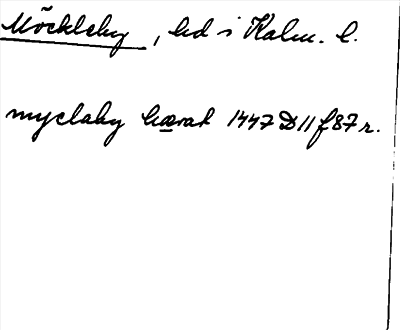 Möckleby, hd i Kalm. l.
myclaby hærat 1447 D 11 f 87 r.